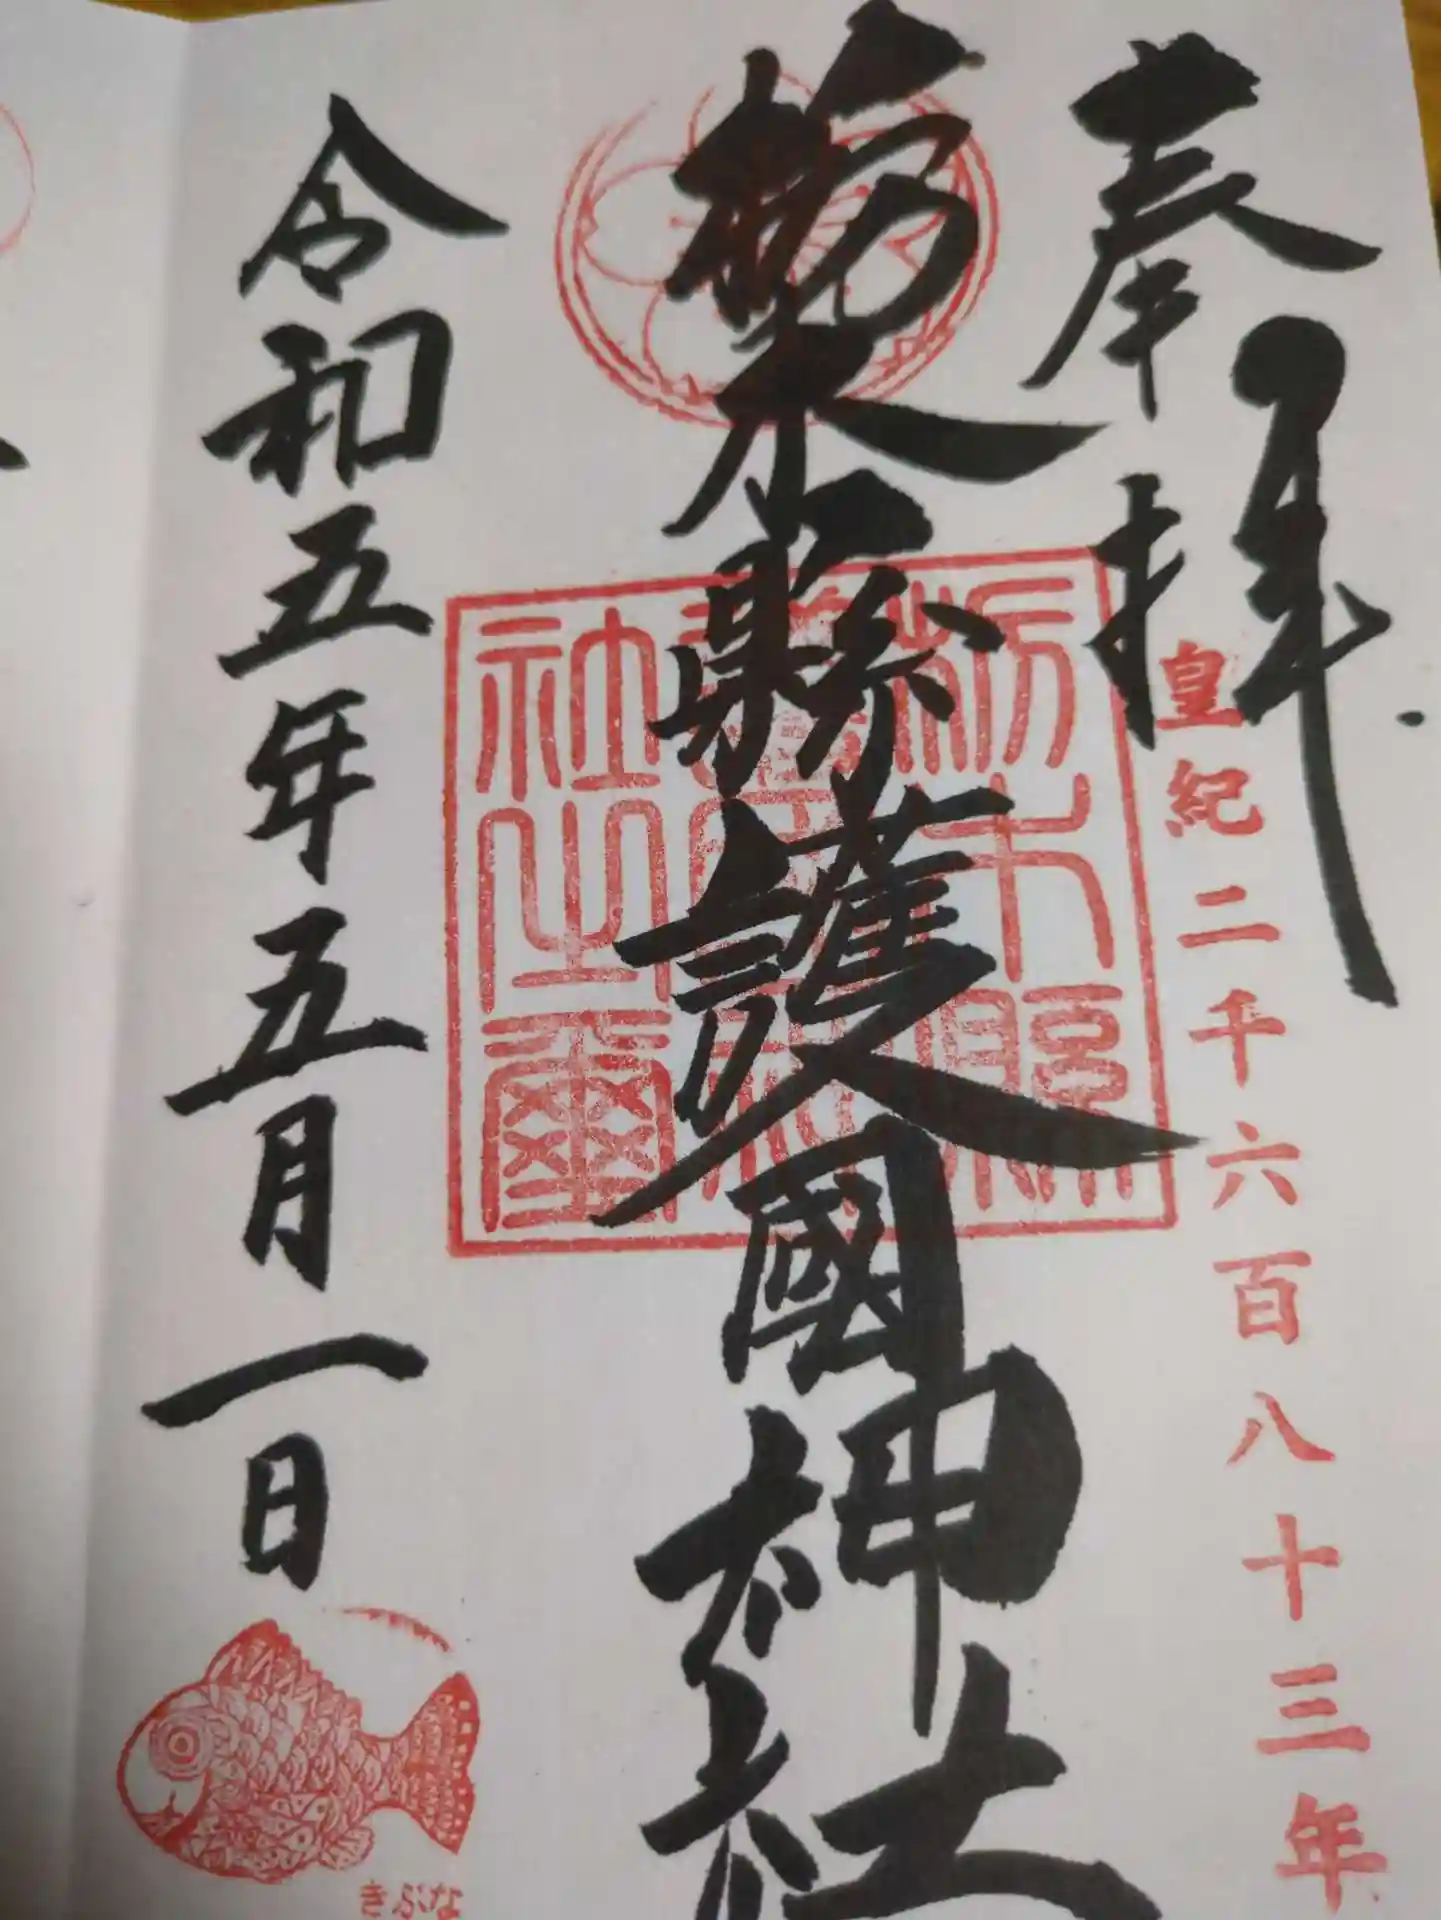 奉拝
皇紀二千六百八十三年
栃木縣護國神社
令和五年五月一日
きぶな